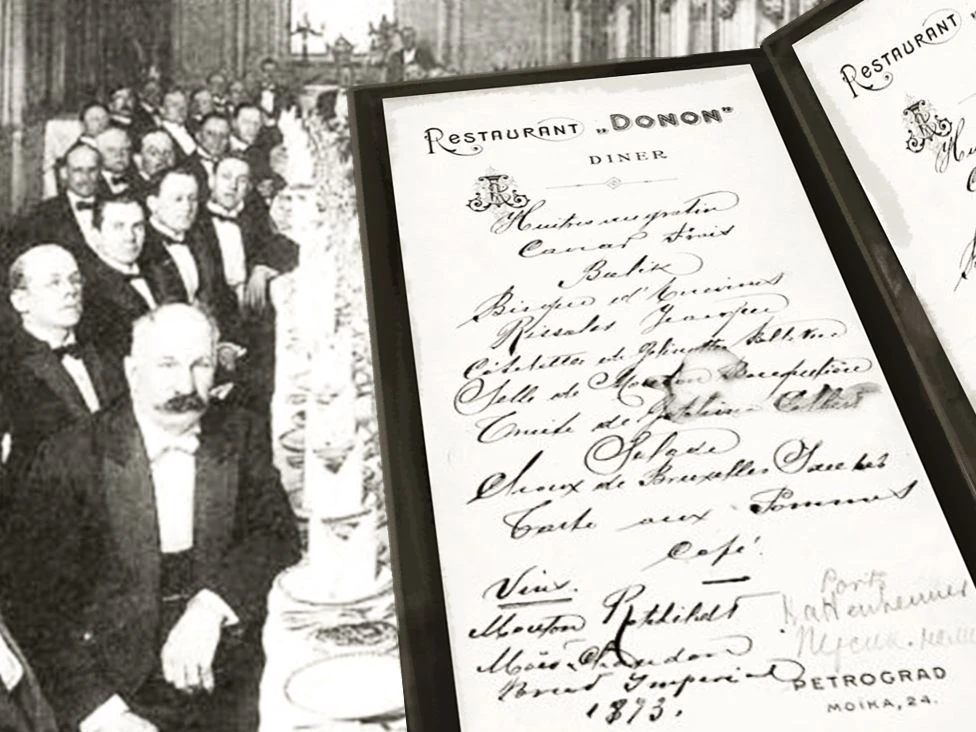 RESTAURANT „DONON"
DINER
Huitres au gratin
Caviar Frais
Balik
Bisque d'Ecrevisses
Côtelettes de Gelinottes
Selle de Mouton
Truite de Gatchina
Salade
Choux de Bruxelles
Tarte aux Pommes
Café.
Vins.
Mouton Rothschild
Moës Chandon
Brut Imperial
1893.
Porto
PETROGRAD
MOIKA, 24.
RESTAURANT „